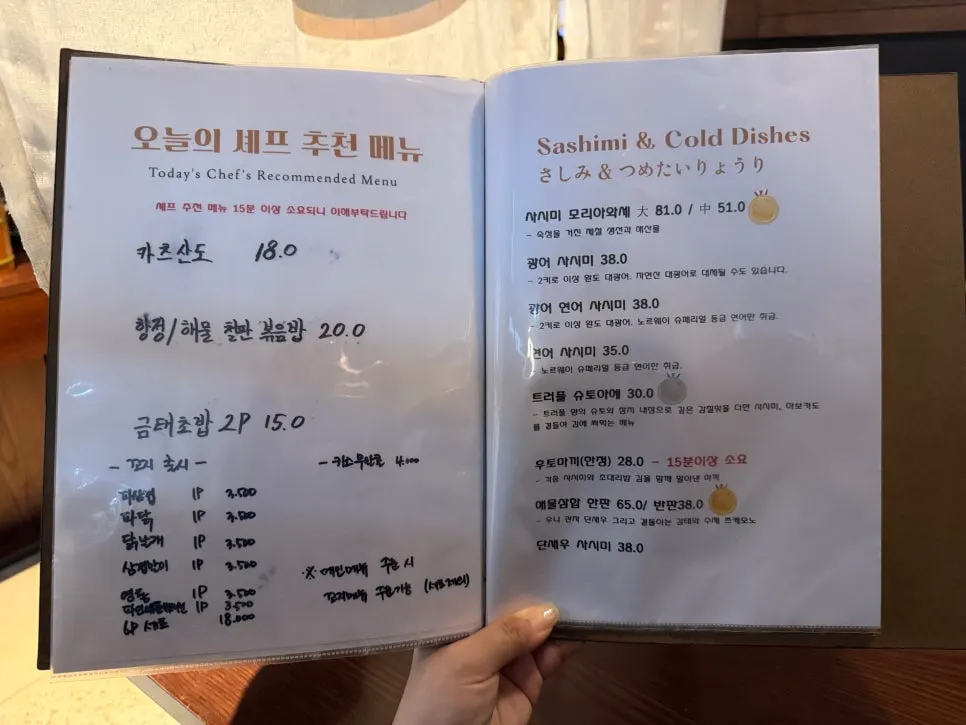 오늘의 셰프 추천 메뉴
Today's Chef's Recommended Menu
셰프 추천 메뉴 15분 이상 소요되니 이해부탁드립니다
카츠산도 18.0
항정/해물 철판 볶음밥 20.0
금태초밥 2P 15.0
- 꼬치 출시 -
파삼겹 1P 3.500
파닭 1P 3.500
닭날개 1P 3.500
삼겹말이 1P 3.500
염통 1P 3.500
1P 3.500
6P 세트 18.000
4.000
※ 메인메뉴 주문 시
꼬치메뉴 주문가능 (세트제외)
Sashimi & Cold Dishes
さしみ & つめたいりょうり
사시미 모리아와세 大 81.0 / 中 51.0
- 숙성을 거친 제철 생선과 해산물
광어 사시미 38.0
- 2키로 이상 완도 대광어. 자연산 대광어로 대체될 수도 있습니다.
광어 연어 사시미 38.0
- 2키로 이상 완도 대광어. 노르웨이 슈페리얼 등급 연어만 취급.
연어 사시미 35.0
- 노르웨이 슈페리얼 등급 연어만 취급.
트러플 슈토아에 30.0
- 트러플 향의 슈토와 참치 내장으로 깊은 감칠맛을 더한 사시미, 아보카도
를 곁들여 김에 싸먹는 메뉴
우토마끼(한정) 28.0 - 15분이상 소요
- 각종 사시미와 초대리밥 김을 함께 말아낸 마끼
해물삼합 한판 65.0/ 반판38.0
- 우니 관자 단새우 그리고 곁들이는 감태와 수제 쯔케모노
단새우 사시미 38.0